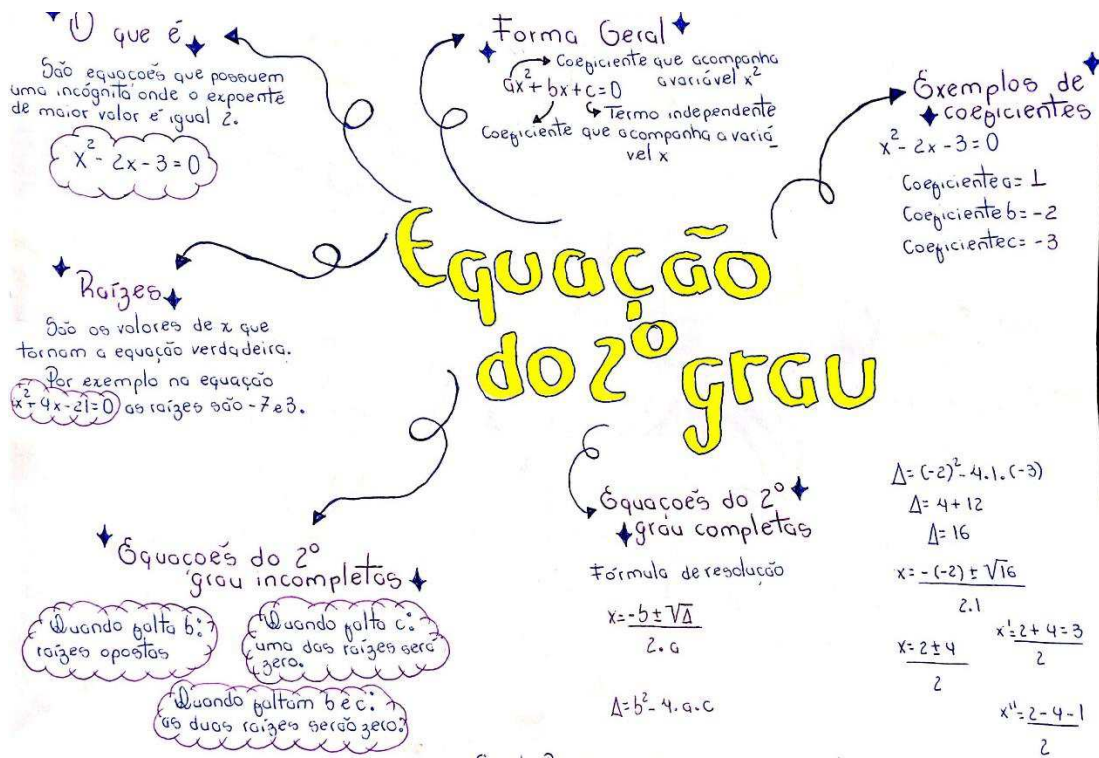 O que é
São equações que possuem
uma incógnita onde o expoente
de maior valor é igual 2.
x² - 2x - 3 = 0
Forma Geral
Coeficiente que acompanha
a variável x²
ax² + bx + c = 0
Termo independente
Coeficiente que acompanha a variá
vel x
Exemplos de
coeficientes
x² - 2x - 3 = 0
Coeficiente a = 1
Coeficiente b = -2
Coeficiente c = -3
Equação
do 2º grau
Raízes
São os valores de x que
tornam a equação verdadeira.
Por exemplo na equação
x² + 4x - 21 = 0 as raízes são -7 e 3.
Equações do 2º
grau incompletas
Quando falta b:
raízes opostas
Quando falta c:
uma das raízes será
zero.
Quando faltam b e c:
as duas raízes serão zero.
Equações do 2º
grau completas
Fórmula de resolução
x = -b ± √Δ
2.a
Δ = b² - 4.a.c
Δ = (-2)² - 4.1.(-3)
Δ = 4 + 12
Δ = 16
x = -(-2) ± √16
2.1
x = 2 ± 4
2
x' = 2 + 4 = 3
2
x'' = 2 - 4 - 1
2